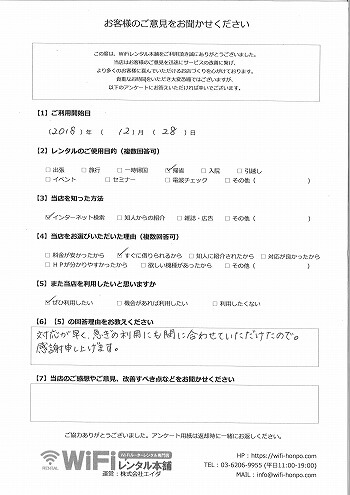 お客様のご意見をお聞かせください
この度は、WiFiレンタル本舗をご利用頂き誠にありがとうございました。
当店はお客様のご意見を迅速にサービスの改善に繋げ、
より多くのお客様に喜んでいただけるお店づくりを心がけております。
貴重なお時間をいただき大変恐縮ではございますが、
以下のアンケートにお答えいただければ幸いでございます。
【1】ご利用開始日
(2018)年 (12)月 (28)日
【2】レンタルのご使用目的（複数回答可）
□出張 □旅行 □一時帰国 ☑帰省 □入院 □引越し
□イベント □セミナー □電波チェック □その他（ ）
【3】当店を知った方法
☑インターネット検索 □知人からの紹介 □雑誌・広告 □その他（ ）
【4】当店をお選びいただいた理由（複数回答可）
□料金が安かったから ☑すぐに借りられるから □知人に紹介されたから □対応が良かったから
□HPが分かりやすかったから □欲しい機種があったから □その他（ ）
【5】また当店を利用したいと思いますか
☑ぜひ利用したい □機会があれば利用したい □利用したくない
【6】（5）の回答理由をお教えください
対応が早く、急ぎの利用にも間に合わせていただけたので。
感謝申し上げます。
【7】当店のご感想やご意見、改善すべき点などをお聞かせください
ご協力ありがとうございました。アンケート用紙は返却時に一緒にお返しください。
WiFiルーターレンタル専門店
RENTAL WiFi レンタル本舗
運営：株式会社エイダ
HP：https://wifi-honpo.com
TEL：03-6206-9955 (平日11:00-19:00)
MAIL：info@wifi-honpo.com